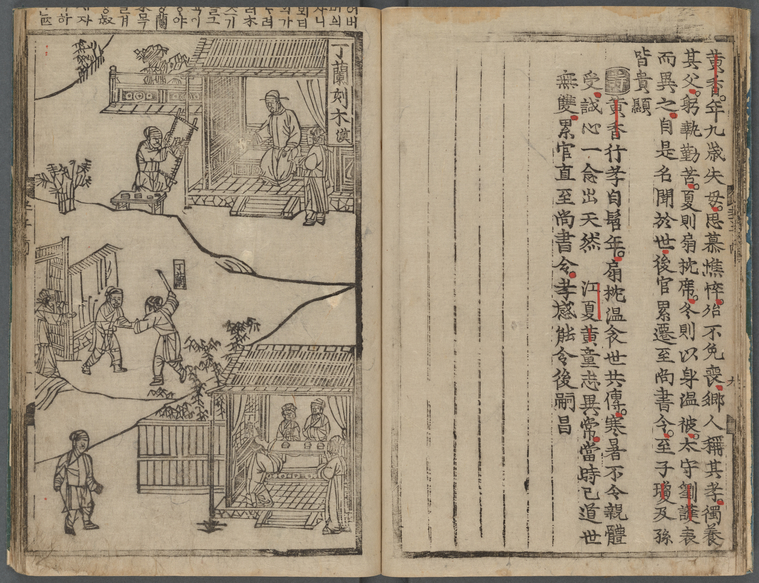 黃香年九歲失母思慕憔悴殆不免喪鄉人稱其孝獨養
其父躬執勤苦夏則扇枕席冬則以身溫被太守劉護表
而異之自是名聞於世後官累遷至尚書令至子瓊及孫
皆貴顯
詩 黃香行孝自髫年扇枕溫衾世共傳寒暑不令親體
受誠心一念出天然 江夏黃童志異常當時已道世
無雙累官直至尚書令孝感能令後嗣昌
丁蘭刻木 漢
丁蘭